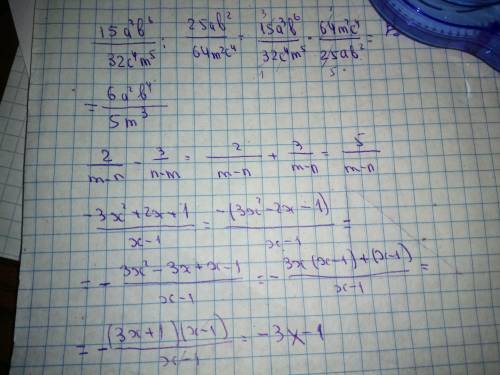 15a³b⁶/32c⁴m⁵ : 25ab²/64m²c⁴ = 15a³b⁶/32c⁴m⁵ · 64m²c⁴/25ab² =
= 6a²b⁴/5m³
2/(m-n) - 3/(n-m) = 2/(m-n) + 3/(m-n) = 5/(m-n)
(-3x²+2x+1)/(x-1) = -(3x²-2x-1)/(x-1) =
= - (3x²-3x+x-1)/(x-1) = - (3x(x-1)+(x-1))/(x-1) =
= - (3x+1)(x-1)/(x-1) = -3x-1